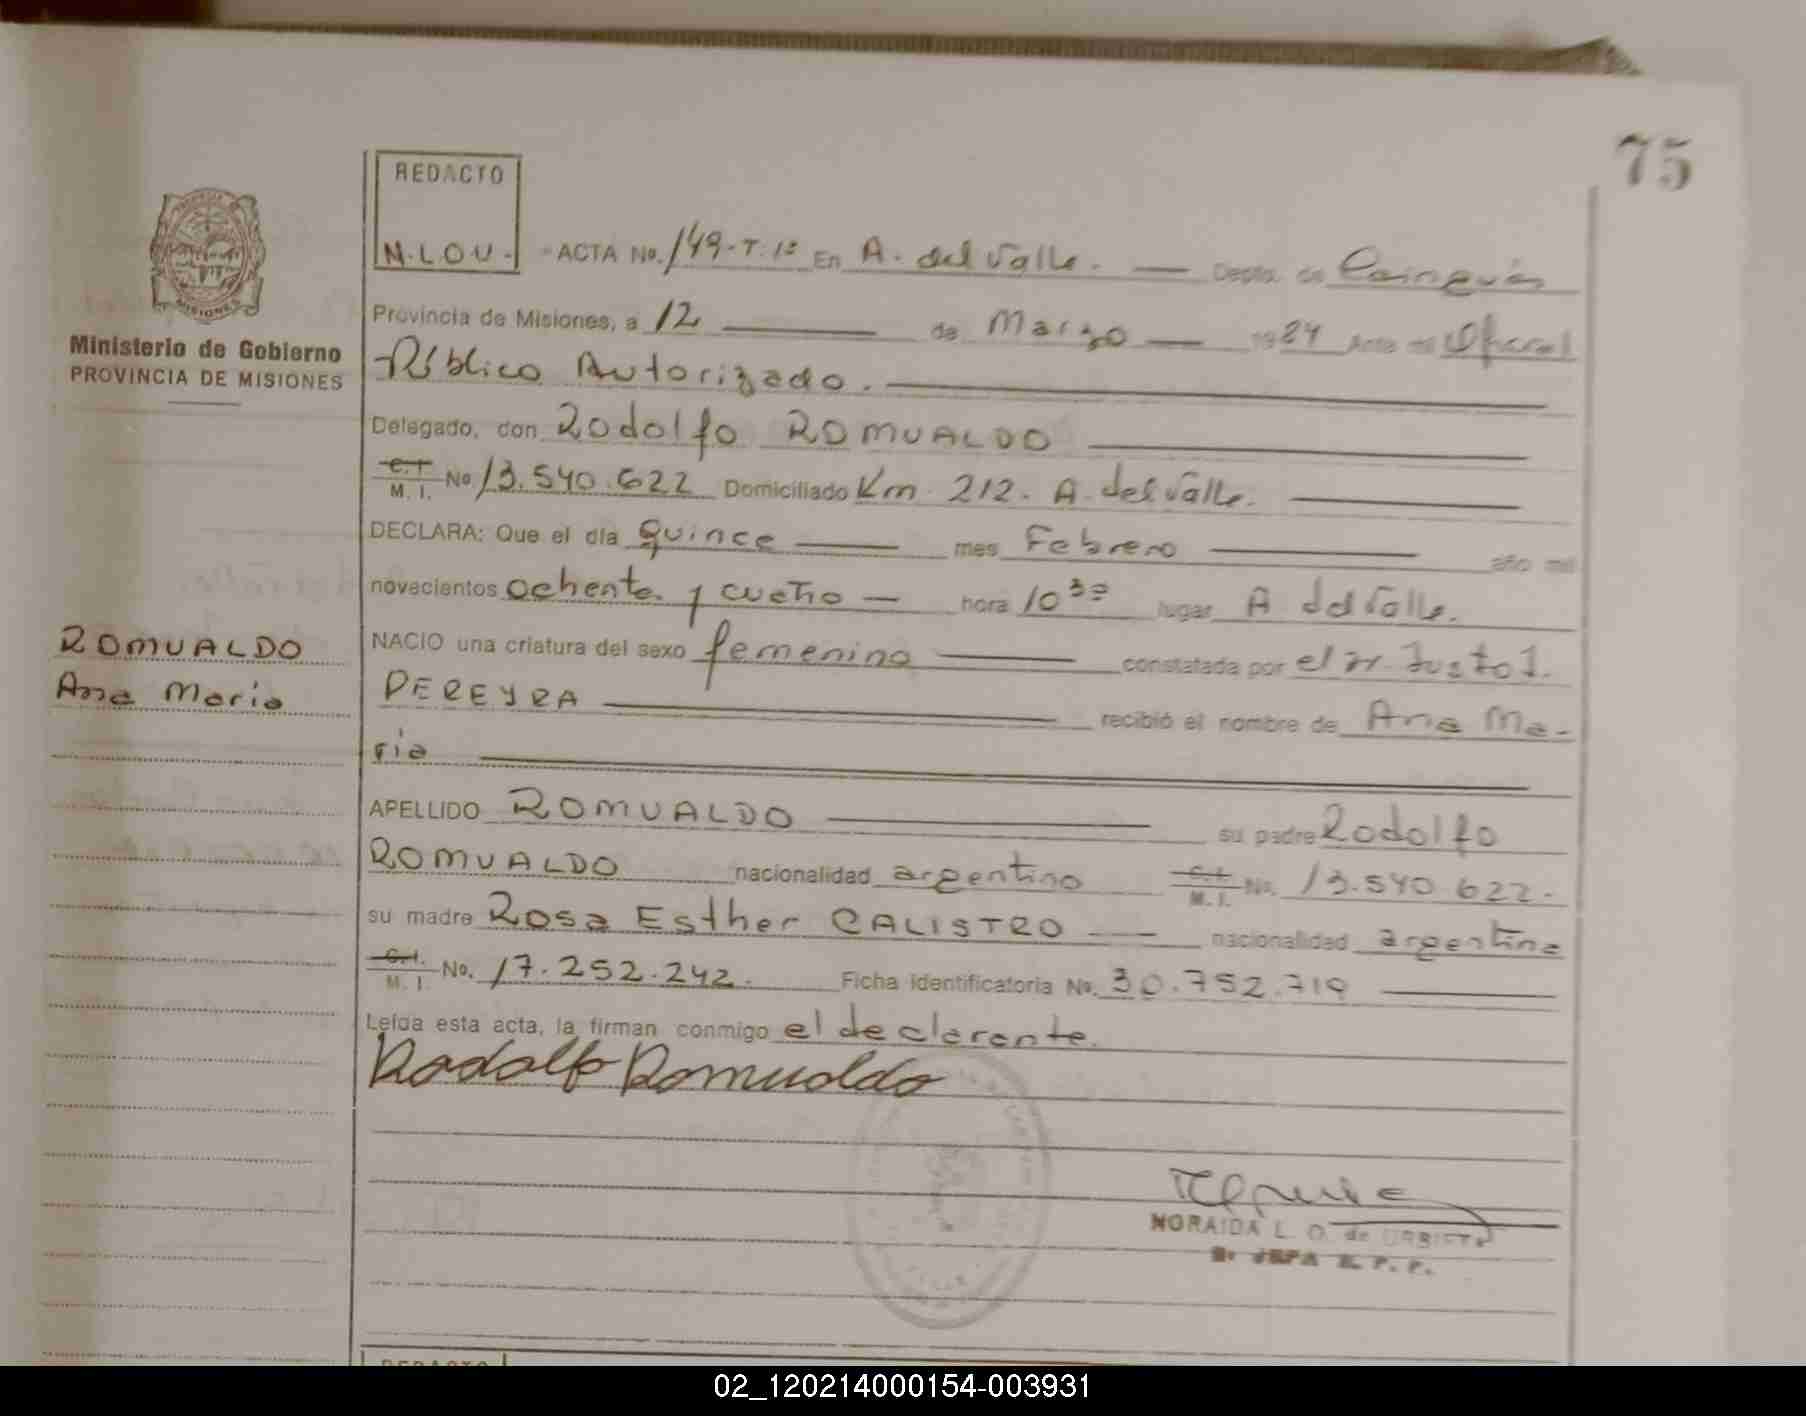 75
REDACTO
N.L.O.U.-
- ACTA No. 149-T.1º En A. del Valle. — Depto. de Cainguás
Provincia de Misiones, a 12 — de Marzo — 1984 Ante mí Oficial
Público Autorizado. —
Ministerio de Gobierno
PROVINCIA DE MISIONES
Delegado, don Rodolfo ROMUALDO —
C.I. M. I. No 13.540.622 Domiciliado Km. 212. A. del Valle. —
DECLARA: Que el día quince — mes Febrero — año mil
novecientos ochenta y cuatro — hora 10 30 lugar A del Valle.
NACIO una criatura del sexo femenino — constatada por el
PEREYRA — recibió el nombre de Ana Ma-
ría —
ROMUALDO
Ana María
APELLIDO ROMUALDO — su padre Rodolfo
ROMUALDO nacionalidad argentino C.I. M. I. No. 13.540.622.
su madre Rosa Esther CALISTRO — nacionalidad argentina
C.I. M. I. No. 17.252.242. Ficha Identificatoria No. 30.752.719 —
Leída esta acta, la firman conmigo el declarante.
Rodolfo Romualdo
NORAIDA L. O. de URBIETA
JEFA R. P. P.
REDACTO
02_120214000154-003931